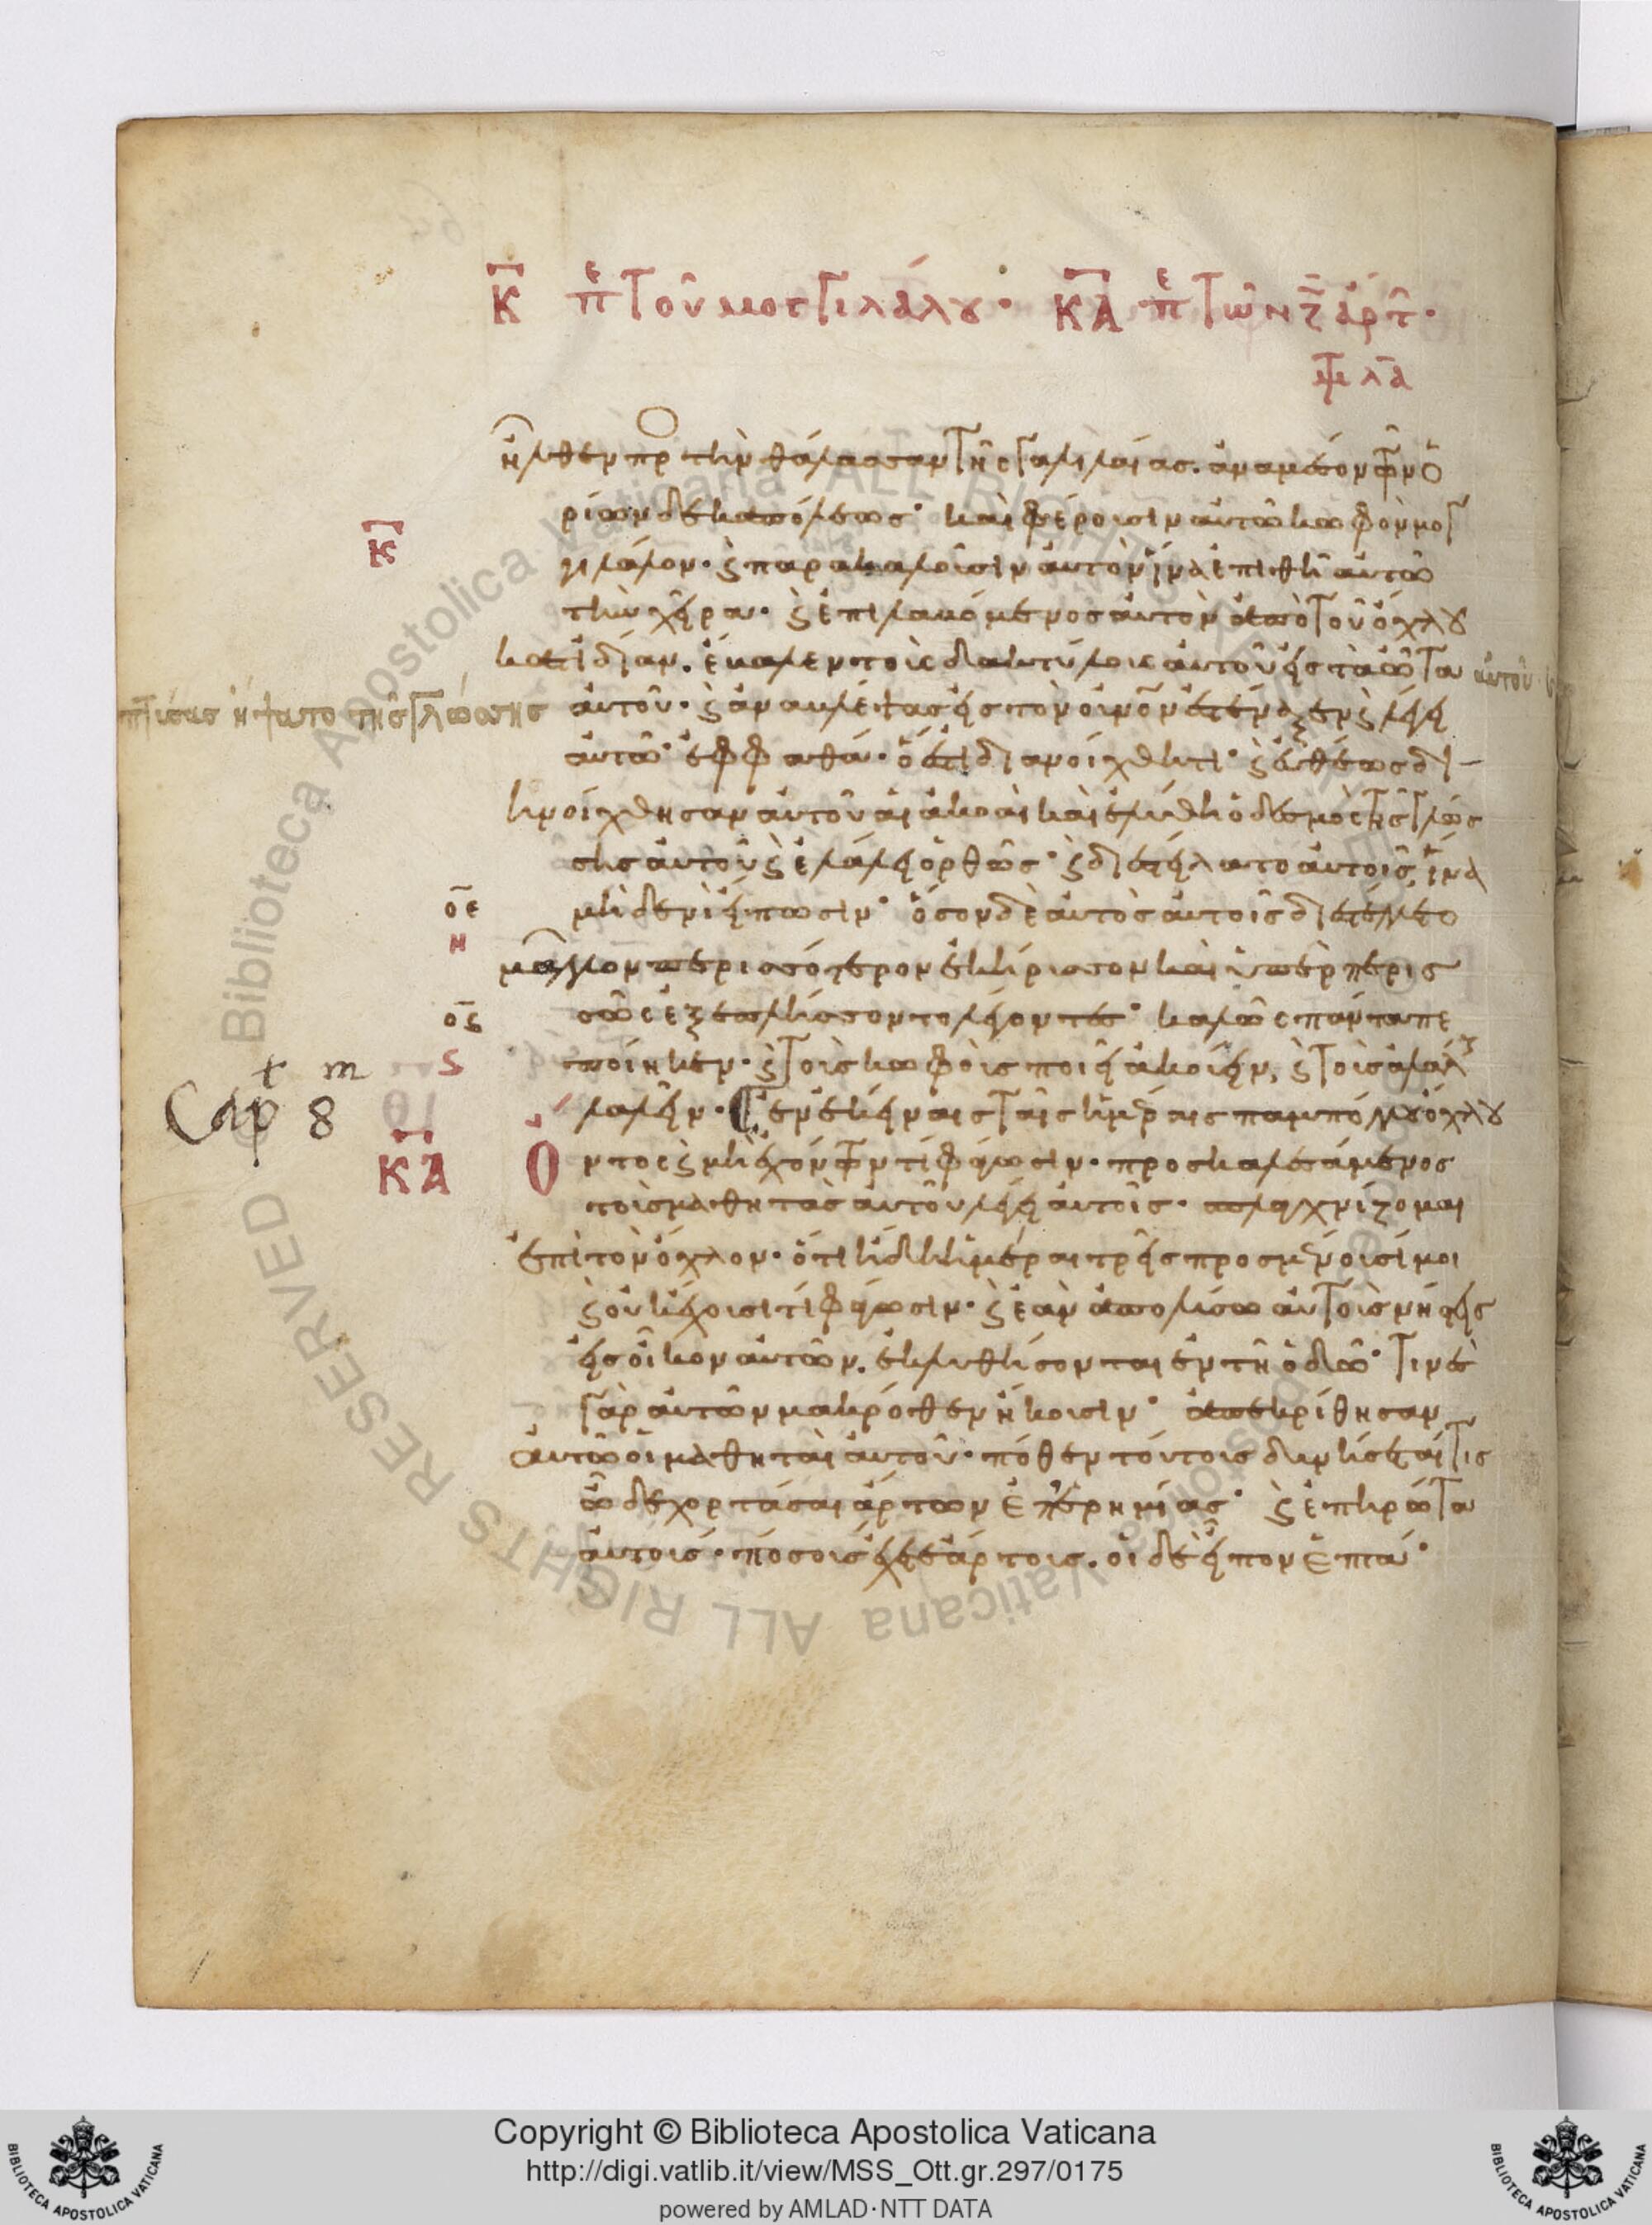 Κ πε τοῦ μογγιλάλου· ΚΑ πε τῶν ζ ἄρτ·
ψ λα
ἦλθεν πρ τὴν θάλασσαν τῆς γαλιλαίας. ἀναμέσον τῶν ὁ
ρίων δεκαπόλεως· καὶ φέρουσιν αὐτῶ κωφὸν μογ
Κ
γιλάλον· ϗ παρακαλοῦσιν αὐτὸν ἵνα ἐπιθῆ αὐτῶ
τὴν χεῖρα· ϗ ἐπιλαβόμενος αὐτὸν ἀπὸ τοῦ ὄχλου
κατιδίαν. ἔβαλεν τοὺς δακτύλους αὐτοῦ εἰς τὰ ὦτα αὐτοῦ
πτύσας ἥψατο τῆς γλώσσης
αὐτοῦ· ϗ ἀναβλέψας εἰς τὸν οὐνὸν ἐστέναξεν ϗ λέγει
αὐτῶ· ἐφφαθά· ὅ ἐστι διανοίχθητι· ϗ εὐθέως δι
ηνοίχθησαν αὐτοῦ αἱ ἀκοαὶ καὶ ἐλύθη ὁ δεσμὸς τῆς γλώσ
σης αὐτοῦ ϗ ἐλάλει ὀρθῶς· ϗ διεστείλατο αὐτοῖς, ἵνα
οε
η
μηδενὶ εἴπωσιν· ὅσον δὲ αὐτὸς αὐτοῖς διεστέλλετο
μᾶλλον περισσότερον ἐκήρυσσον καὶ ὑπὲρ περισ
ος
σῶς ἐξεπλήσσοντο λέγοντες· καλῶς πάντα πε
ς
ποίηκεν· ϗ τοὺς κωφοὺς ποιεῖ ἀκούειν, ϗ τοὺς ἀλάλ
t m
Cap 8
λαλεῖν· ἐν ἐκείναις ταῖς ἡμέραις παμπόλλου ὄχλου
ΚΑ
Ὄντος ϗ μὴ ἐχόντων τί φάγωσιν· προσκαλεσάμενος
τοὺς μαθητὰς αὐτοῦ λέγει αὐτοῖς· σπλαγχνίζομαι
ἐπὶ τὸν ὄχλον· ὅτι ἤδη ἡμέραι τρεῖς προσμένουσί μοι
ϗ οὐκ ἔχουσι τί φάγωσιν· ϗ ἐὰν ἀπολύσω αὐτοὺς νήστεις
εἰς οἶκον αὐτῶν. ἐκλυθήσονται ἐν τῆ ὁδῶ· τινὲς
γὰρ αὐτῶν μακρόθεν ἥκουσιν· ἀπεκρίθησαν
αὐτῶ οἱ μαθηταὶ αὐτοῦ· πόθεν τούτους δυνήσεταί τις
ὧδε χορτάσαι ἄρτων ἐπ' ἐρημίας· ϗ ἐπηρώτα
αὐτούς· πόσους ἔχετε ἄρτους. οἱ δὲ εἶπον ἑπτά·
Copyright © Biblioteca Apostolica Vaticana
http://digi.vatlib.it/view/MSS_Ott.gr.297/0175
powered by AMLAD·NTT DATA
BIBLIOTECA APOSTOLICA VATICANA
BIBLIOTECA APOSTOLICA VATICANA
Biblioteca Apostolica Vaticana ALL RIGHTS RESERVED